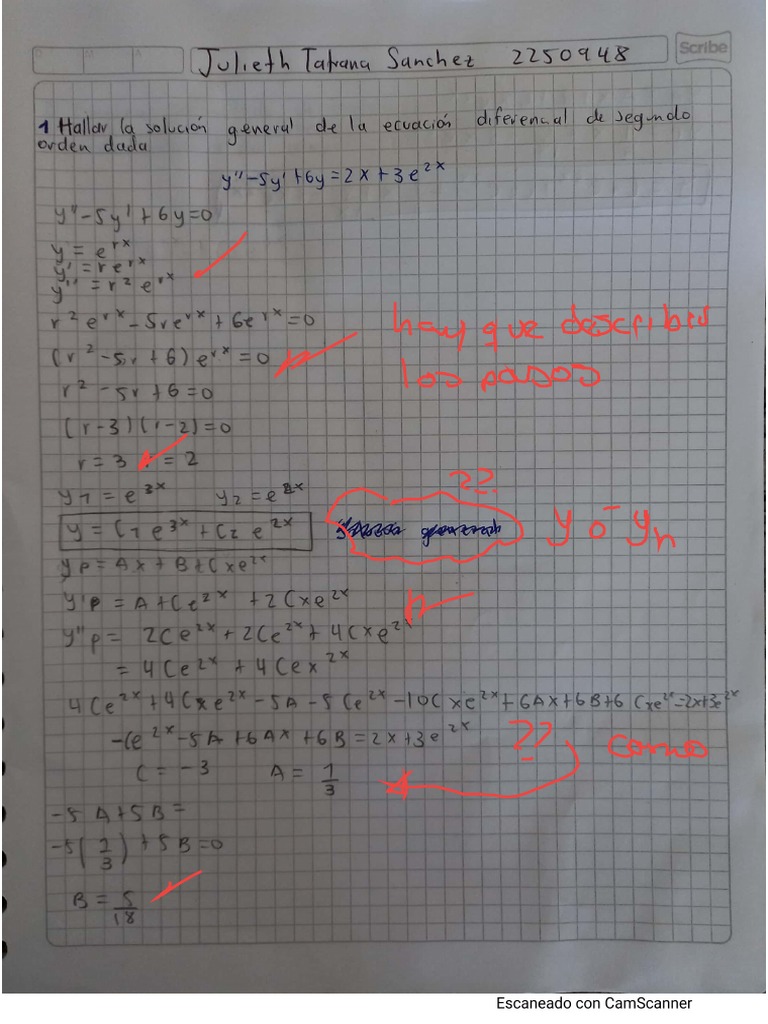 Julieth Tatiana Sanchez 2250948
Scribe
1 Hallar la solución general de la ecuación diferencial de segundo
orden dada
y'' - 5y' + 6y = 2x + 3e^2x
y'' - 5y' + 6y = 0
y = e^rx
y' = re^rx
y'' = r^2 e^rx
r^2 e^rx - 5re^rx + 6e^rx = 0
hay que describir
(r^2 - 5r + 6) e^rx = 0
los pasos
r^2 - 5r + 6 = 0
(r-3)(r-2) = 0
r = 3 r = 2
??
y1 = e^3x y2 = e^2x
y = C1 e^3x + C2 e^2x
y ó yh
yp = Ax + B + Cxe^2x
y'p = A + Ce^2x + 2Cxe^2x
y''p = 2Ce^2x + 2Ce^2x + 4Cxe^2x
= 4Ce^2x + 4Cex^2x
4Ce^2x + 4Cxe^2x - 5A - 5Ce^2x - 10Cxe^2x + 6Ax + 6B + 6Cxe^2x = 2x + 3e^2x
-Ce^2x - 5A + 6Ax + 6B = 2x + 3e^2x ?? como
C = -3 A = 1/3
-5A + 5B =
-5( /3) + 5B = 0
B = 5/18
Escaneado con CamScanner